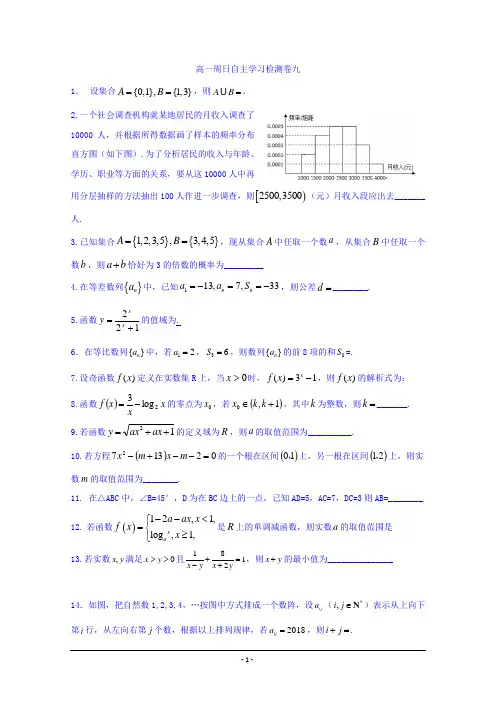 高一周日自主学习检测卷九
1. 设集合 A={0,1}, B={1,3}，则 A∪B=.
2.一个社会调查机构就某地居民的月收入调查了
10000 人，并根据所得数据画了样本的频率分布
直方图（如下图）.为了分析居民的收入与年龄、
学历、职业等方面的关系，要从这10000人中再
用分层抽样的方法抽出100人作进一步调查，则[2500,3500)（元）月收入段应出去_______
人.
频率/组距
0.0005
0.0004
0.0003
0.0002
0.0001
1000 1500 2000 2500 3000 3500 4000
月收入(元)
3.已知集合 A={1,2,3,5}, B={3,4,5}，现从集合A中任取一个数a，从集合B中任取一个
数b，则a+b恰好为3的倍数的概率为_________
4.在等差数列{a_n}中，已知a_1=-13, a_n=7, S_n=-33，则公差d=________.
5.函数 y=2^x/(2^x+1) 的值域为.
6．在等比数列{a_n}中，若a_1=2，S_3=6，则数列{a_n}的前8项的和S_8=.
7.设奇函数f(x)定义在实数集R上，当x>0时，f(x)=3^x-1，则f(x)的解析式为;
8.函数 f(x)=3/x-log_2 x 的零点为x_0，若x_0∈(k,k+1)，其中k为整数，则k=_______.
9.若函数 y=√(ax^2+ax+1) 的定义域为R，则a的取值范围为__________.
10.若方程7x^2-(m+13)x-m-2=0的一个根在区间(0,1)上，另一根在区间(1,2)上，则实
数m的取值范围为________.
11. 在△ABC中，∠B=45°，D为在BC边上的一点，已知AD=5，AC=7，DC=3则AB=________
12. 若函数 f(x)={1-2a-ax, x<1, log_a^x, x≥1, 是R上的单调减函数，则实数a的取值范围是
13.若实数x,y满足x>y>0且1/(x-y)+8/(x+2y)=1，则x+y的最小值为______________
14．如图，把自然数1,2,3,4，…按图中方式排成一个数阵，设a_ij（i,j∈N*）表示从上向下
第i行，从左向右第j个数，根据以上排列规律，若a_ij=2018，则i+j=.
- 1 -